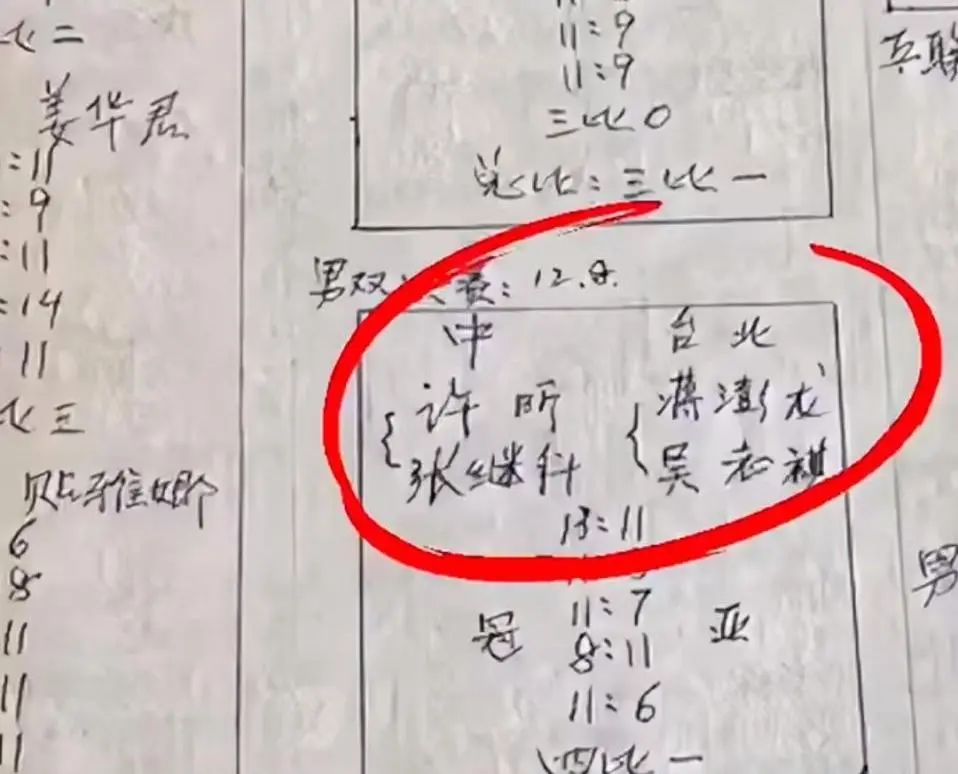 比二
姜华君
:11
:9
:11
:14
11
比三
贴雅娜
6
8
11
11
11
11:9
11:9
三比0
总比:三比一
男双决赛:12.8.
中 台北
许昕 蒋澎龙
张继科 吴志祺
13:11
11:7
冠 8:11 亚
11:6
四比一
乒联
男